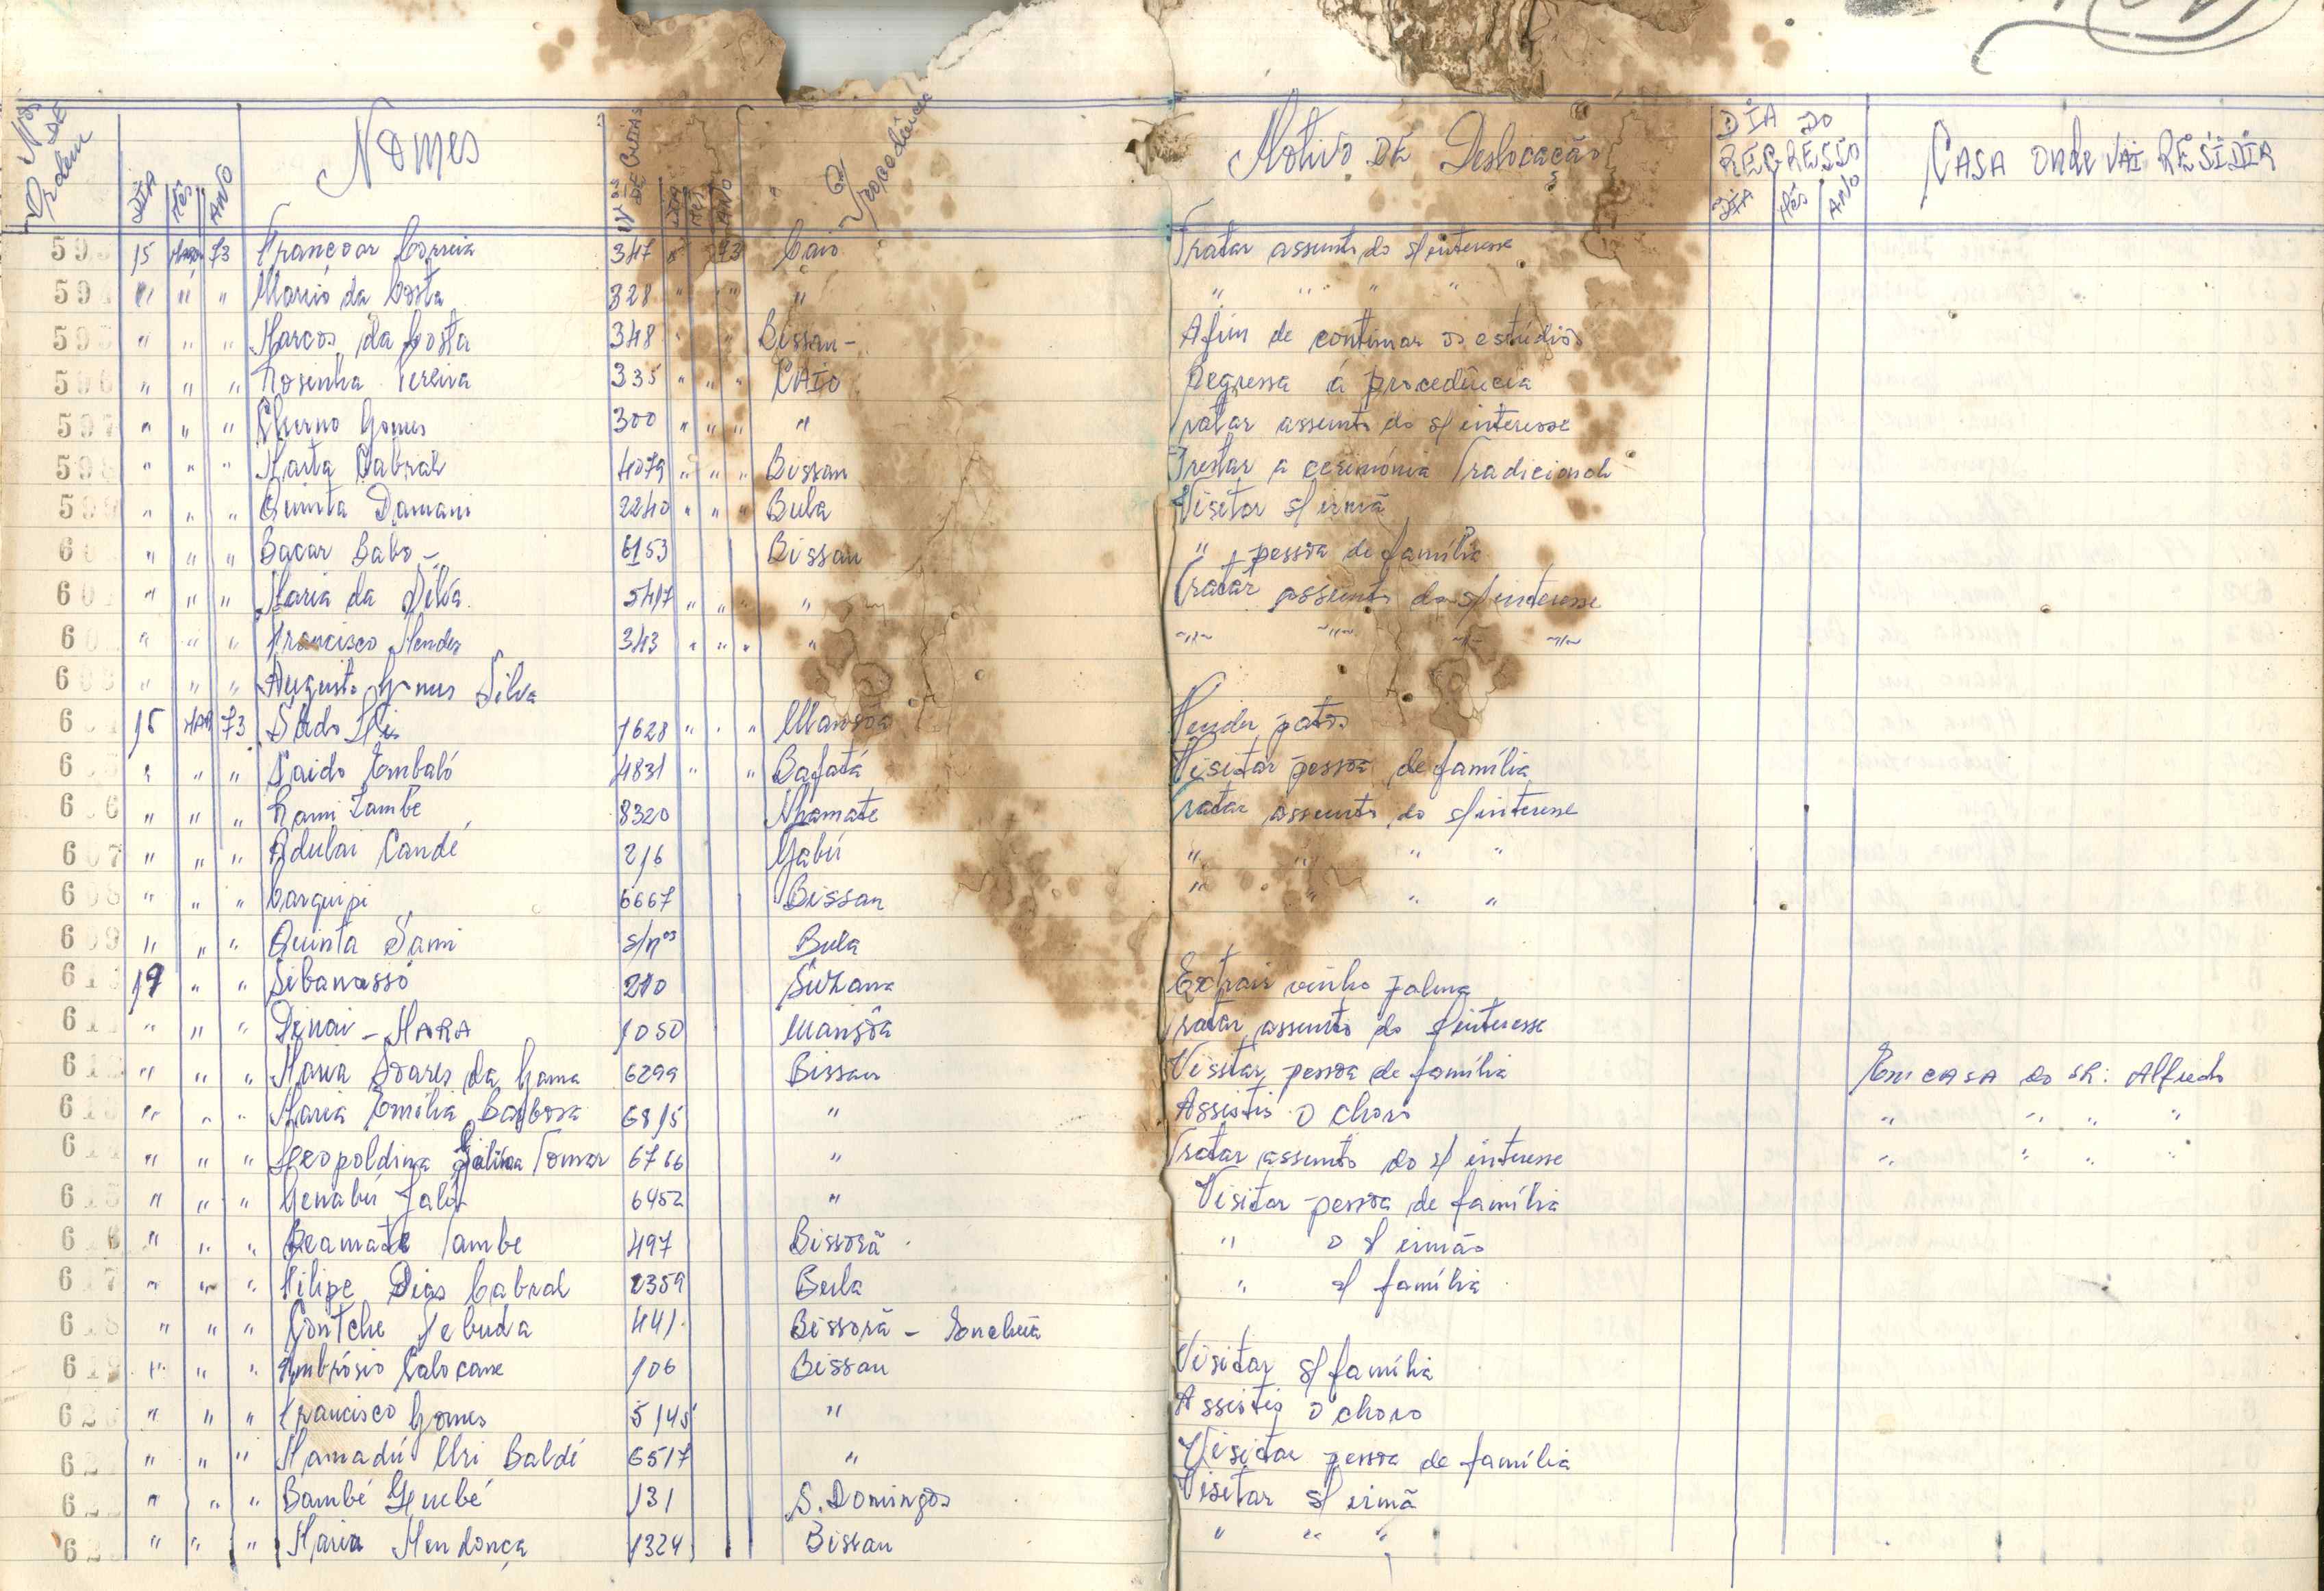 Nos DE Ordem DIA Mês ANO Nomes Nos DE GUIAS DIA Mês ANO Procedência Motivo DE Deslocação DIA DO REGRESSO DIA Mês ANO CASA onde VAI RESIDIR
593 15 73 Correia 347 73 Caio Tratar assunto do s/ interesse
59 " " " Mário da Costa 328 " " " " " " " "
595 " " " Marcos da Costa 348 " " Bissau - Afim de continuar os estudios
596 " " " Rosinha Pereira 335 " " " CAIO Regressa á procedência
597 " " " Gomes 300 " " " " Tratar assunto do s/ interesse
598 " " " Marta Cabral 4079 " " " Bissau a cerimónia Tradicional
599 " " " Quinta Damani 2240 " " " Bula Visitar s/ irmã
60 " " " Bacar Babo - 6153 Bissau " pessoa de família
60 " " " Maria da Silva 5417 " " " " Tratar assunto do s/ interesse
60 " " " Francisco Mendes 343 " " " " " " " "
603 " " " Augusto Gomes Silva
6 15 MAR 73 1628 " " " Mansoa Vender patos
60 " " " Saido Embaló 4831 " " Bafatá Visitar pessoa de família
606 " " " 8320 Nhamate Tratar assunto do s/ interesse
607 " " " Adulai Candé 216 Gabú " " " "
608 " " " 6667 Bissau " " " "
609 " " " Quinta Sami s/nos Bula
610 19 " " Sibanasso 210 Suzana Extrair vinho palma
611 " " " - MARA 1050 Mansôa Tratar assunto do s/ interesse
612 " " " Maria Soares da Gama 6299 Bissau Visitar pessoa de família Em CASA do SR: Alfredo
613 " " " Maria Emília Barbosa 6815 " Assistir o choro " " " "
614 " " " Leopoldina 6766 " Tratar assunto do s/ interesse " " " "
615 " " " Genabú Jaló 6452 " Visitar pessoa de família
616 " " " Beamate Tambe 497 Bissorã " o s/ irmão
617 " " " Filipe Dias Cabral 2359 Bula " s/ família
618 " " " 441 Bissorã -
619 " " " Ambrósio 106 Bissau Visitar s/ família
620 " " " Francisco Gomes 5145 " Assistir o choro
62 " " " Mamadú Uri Baldé 6517 " Visitar pessoa de família
62 " " " Bambé 131 S. Domingos Visitar s/ irmã
62 " " " Maria Mendonça 1324 Bissau " " "